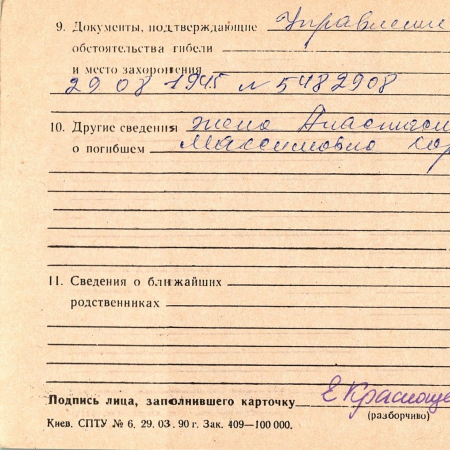 9. Документы, подтверждающие Управление
обстоятельства гибели
и место захоронения
29 08 1945 N 5482908
10. Другие сведения жена
о погибшем Максимовна
11. Сведения о ближайших
родственниках
Подпись лица, заполнившего карточку
(разборчиво)
Киев. СПТУ № 6. 29. 03. 90 г. Зак. 409—100 000.